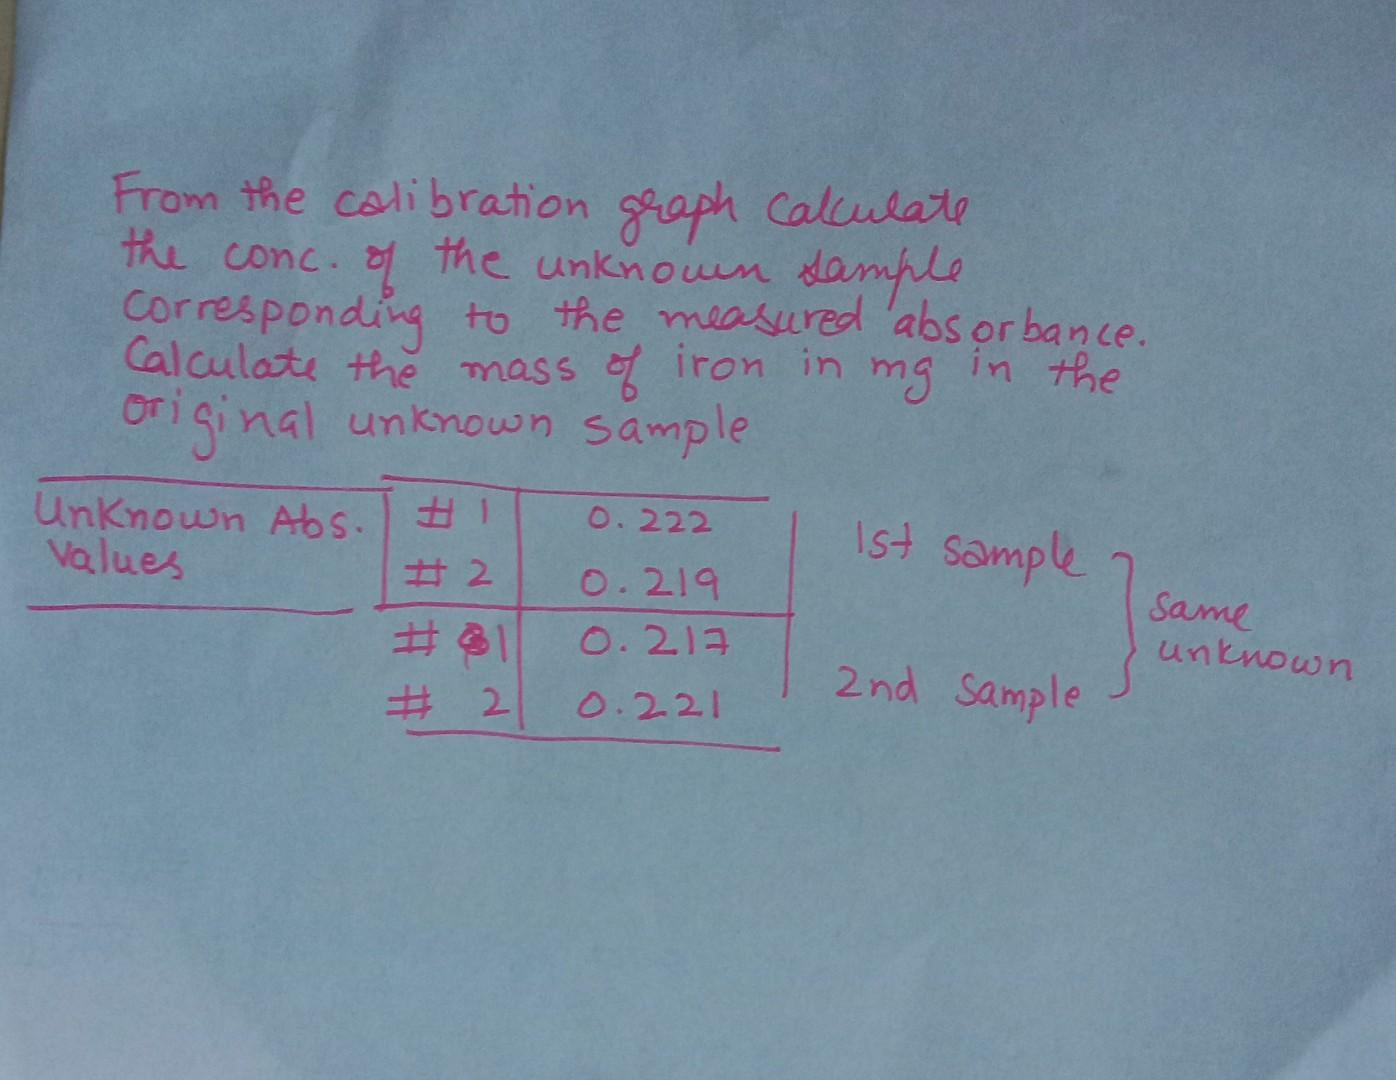 From the calibration graph calculate
the conc. of the unknown sample
corresponding to the measured absorbance.
Calculate the mass of iron in mg in the
original unknown sample
Unknown Abs. # 1 0.222 1st sample
Values # 2 0.219 same
# 1 0.217 unknown
# 2 0.221 2nd sample